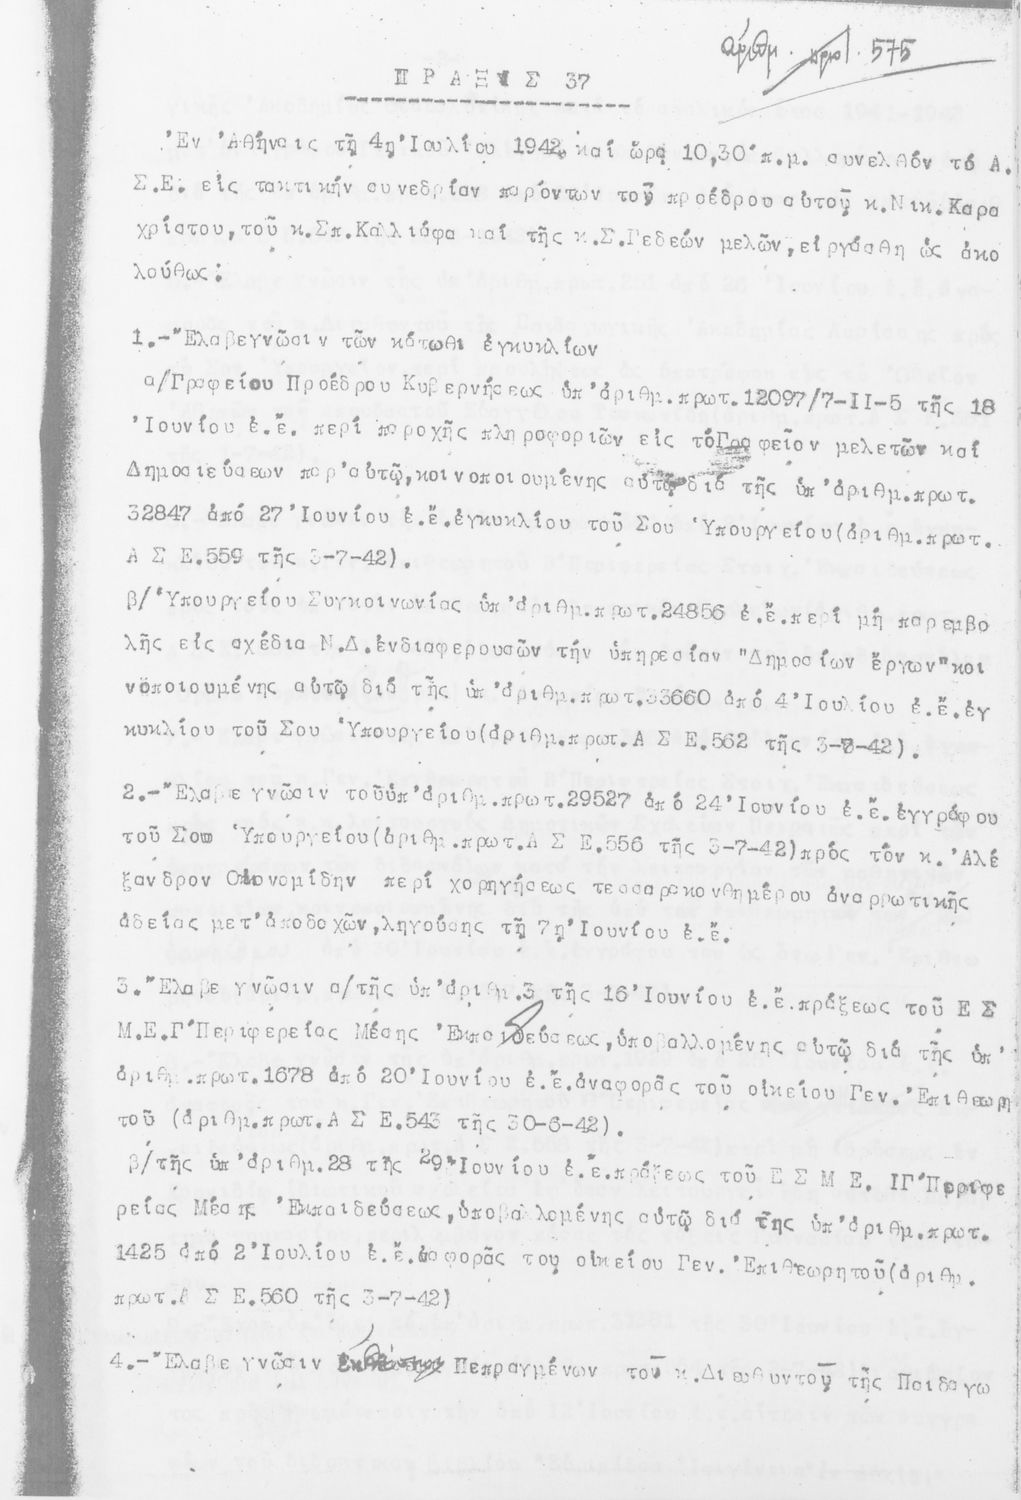 ἀριθμ. πρωτ. 575
ΠΡΑΞΙΣ 37
Ἐν Ἀθήναις τῇ 4ῃ Ἰουλίου 1942 καί ὥρᾳ 10,30 π.μ. συνελθόν τό Α.
Σ.Ε. εἰς τακτικήν συνεδρίαν παρόντων τοῦ προέδρου αὐτοῦ κ.Νικ.Καρα
χρίστου,τοῦ κ.Σπ.Καλλιάφα καί τῆς κ.Σ.Γεδεών μελῶν,εἰργάσθη ὡς ἀκο
λούθως:
1.-Ἔλαβεγνῶσιν τῶν κάτωθι ἐγκυκλίων
α/Γραφείου Προέδρου Κυβερνήσεως ὑπ'ἀριθμ.πρωτ.12097/7-ΙΙ-5 τῆς 18
Ἰουνίου ἐ.ἔ. περί παροχῆς πληροφοριῶν εἰς τόΓραφεῖον μελετῶν καί
Δημοσιεύσεων παρ'αὐτῷ,κοινοποιουμένης αὐτῷ διά τῆς ὑπ'ἀριθμ.πρωτ.
32847 ἀπό 27 Ἰουνίου ἐ.ἔ.ἐγκυκλίου τοῦ Σου Ὑπουργείου(ἀριθμ.πρωτ.
Α Σ Ε.559 τῆς 3-7-42).
β/Ὑπουργείου Συγκοινωνίας ὑπ'ἀριθμ.πρωτ.24856 ἐ.ἔ.περί μή παρεμβο
λῆς εἰς σχέδια Ν.Δ.ἐνδιαφερουσῶν τήν ὑπηρεσίαν "Δημοσίων ἔργων"κοι
νοποιουμένης αὐτῷ διά τῆς ὑπ'ἀριθμ.πρωτ.33660 ἀπό 4 Ἰουλίου ἐ.ἔ.ἐγ
κυκλίου τοῦ Σου Ὑπουργείου(ἀριθμ.πρωτ.Α Σ Ε.562 τῆς 3-7-42).
2.-Ἔλαβε γνῶσιν τοῦὑπ'ἀριθμ.πρωτ.29527 ἀπό 24 Ἰουνίου ἐ.ἔ.ἐγγράφου
τοῦ Σου Ὑπουργείου(ἀριθμ.πρωτ.Α Σ Ε.556 τῆς 3-7-42)πρός τόν κ.Ἀλέ
ξανδρον Οἰκονομίδην περί χορηγήσεως τεσσαρακονθημέρου ἀναρρωτικῆς
ἀδείας μετ'ἀποδοχῶν,ληγούσης τῇ 7ῃ Ἰουνίου ἐ.ἔ.
3.Ἔλαβε γνῶσιν α/τῆς ὑπ'ἀριθμ.3 τῆς 16 Ἰουνίου ἐ.ἔ.πράξεως τοῦ Ε Σ
Μ.Ε.Γ'Περιφερείας Μέσης Ἐκπαιδεύσεως,ὑποβαλλομένης αὐτῷ διά τῆς ὑπ'
ἀριθμ.πρωτ.1678 ἀπό 20 Ἰουνίου ἐ.ἔ.ἀναφορᾶς τοῦ οἰκείου Γεν.Ἐπιθεωρη
τοῦ (ἀριθμ.πρωτ.Α Σ Ε.543 τῆς 30-6-42).
β/τῆς ὑπ'ἀριθμ.28 τῆς 29 Ἰουνίου ἐ.ἔ.πράξεως τοῦ Ε Σ Μ Ε. ΙΓ'Περιφε
ρείας Μέσης Ἐκπαιδεύσεως,ὑποβαλλομένης αὐτῷ διά τῆς ὑπ'ἀριθμ.πρωτ.
1425 ἀπό 2 Ἰουλίου ἐ.ἔ.ἀαφορᾶς του οἰκείου Γεν.Ἐπιθεωρητοῦ(ἀριθμ.
πρωτ.Α Σ Ε.560 τῆς 3-7-42)
4.-Ἔλαβε γνῶσιν Πεπραγμένων τοῦ κ.Διευθυντοῦ τῆς Παιδαγω